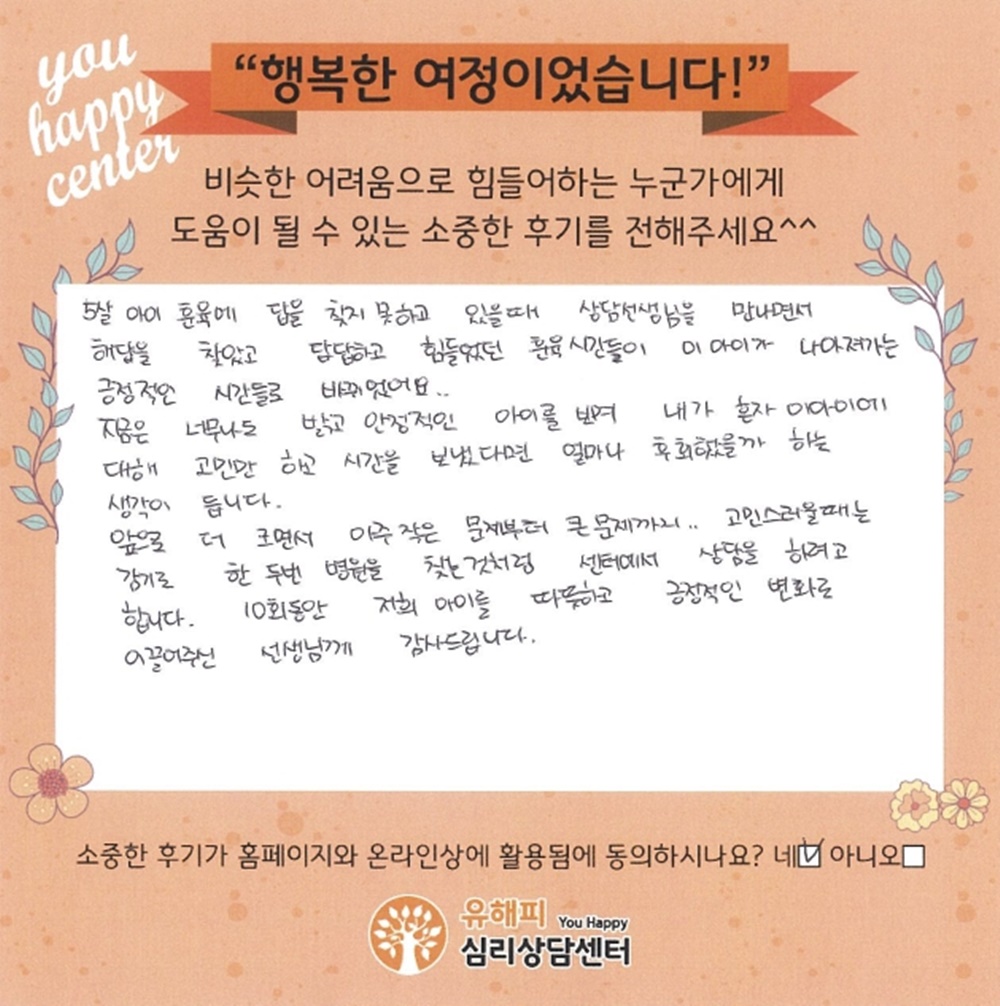 you
happy
center
“행복한 여정이었습니다!”
비슷한 어려움으로 힘들어하는 누군가에게
도움이 될 수 있는 소중한 후기를 전해주세요^^
5살 아이 훈육에 답을 찾지 못하고 있을때 상담선생님을 만나면서
해답을 찾았고 답답하고 힘들었던 훈육시간들이 이 아이가 나아져가는
긍정적인 시간들로 바뀌었어요..
지금은 너무나도 밝고 안정적인 아이를 보며 내가 혼자 이아이에
대해 고민만 하고 시간을 보냈다면 얼마나 후회했을까 하는
생각이 듭니다.
앞으로 더 크면서 아주 작은 문제부터 큰 문제까지.. 고민스러울때는
감기로 한 두번 병원을 찾는것처럼 센터에서 상담을 하려고
합니다. 10회동안 저희 아이를 따뜻하고 긍정적인 변화로
이끌어주신 선생님께 감사드립니다.
소중한 후기가 홈페이지와 온라인상에 활용됨에 동의하시나요? 네☑ 아니오☐
유해피 You Happy
심리상담센터